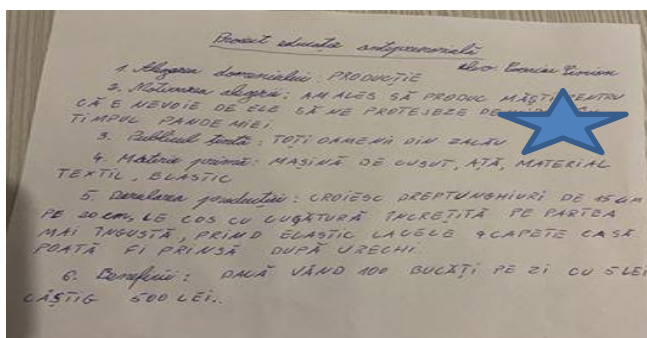 Proiect educație antreprenorială
elev
1. Alegerea domeniului: PRODUCȚIE
2. Motivarea alegerii: AM ALES SĂ PRODUC MĂȘTI PENTRU
CĂ E NEVOIE DE ELE SĂ NE PROTEJEZE DE
TIMPUL PANDEMIEI.
3. Publicul țintă: TOȚI OAMENII DIN ZALĂU
4. Materia primă: MAȘINĂ DE CUSUT, AȚĂ, MATERIAL
TEXTIL, ELASTIC
5. Derularea producției: CROIESC DREPTUNGHIURI DE 15 CM
PE 20 cm, LE COS CU CUSĂTURĂ ÎNCREȚITĂ PE PARTEA
MAI ÎNGUSTĂ, PRIND ELASTIC LA CELE 4 CAPETE CA SĂ
POATĂ FI PRINSĂ DUPĂ URECHI.
6. Beneficii: DACĂ VÂND 100 BUCĂȚI PE ZI CU 5 LEI
CÂȘTIG 500 LEI.